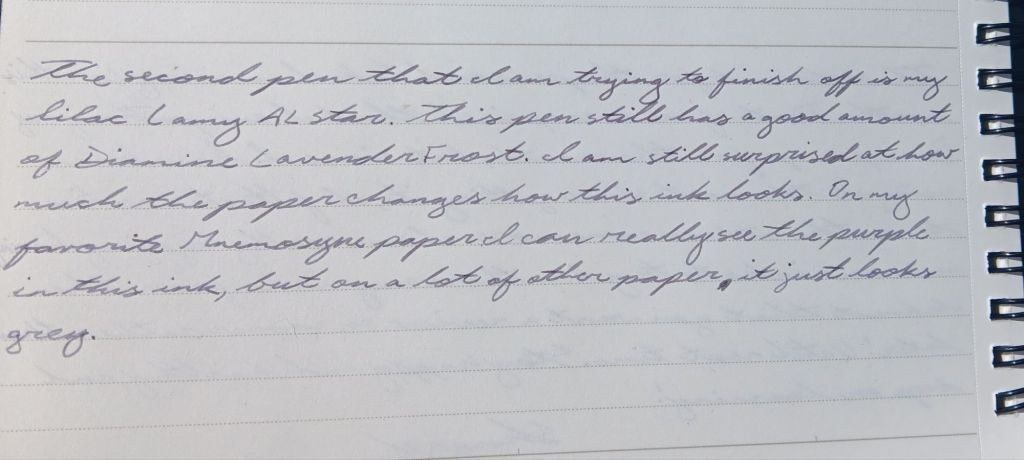 The second pen that I am trying to finish off is my
lilac Lamy AL star. This pen still has a good amount
of Diamine Lavender Frost. I am still surprised at how
much the paper changes how this ink looks. On my
favorite Mnemosyne paper I can really see the purple
in this ink, but on a lot of other paper, it just looks
grey.